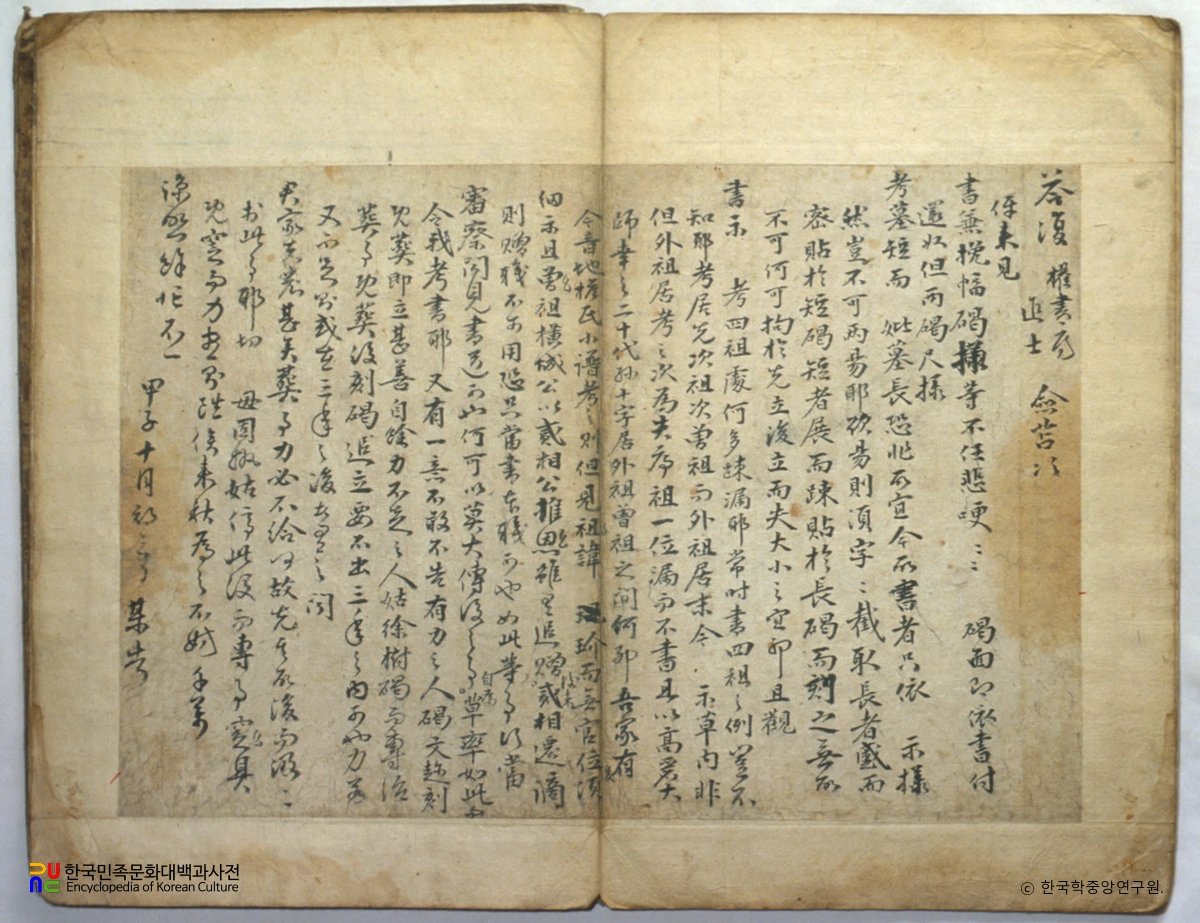 答復 權書房
進士 僉苫次
伻來見
書兼挽幅碣樣等不任悲哽〻〻 碣面即依書付
還奴但兩碣尺樣
考墓短而 妣墓長恐非所宜今所書者只依 示樣
然豈不可兩易耶欲易則須字〻截取長者蹙而
密貼於短碣短者展而踈貼於長碣而刻之無所
不可何可拘於先立後立而失大小之宜耶且觀
書示 考四祖處何多踈漏耶常時書四祖之例豈不
知耶考居先次祖次曾祖而外祖居末今 示草內非
但外祖居考之次為失序祖一位漏而不書且以高麗大
師幸之二十代孫十字居外祖曾祖之間何耶吾家有
令音地權氏小譜考之則但見祖諱 而無官位須
細示且曾祖橫城公以貳相公推恩雖是追贈貳相還謫
則贈職不用恐只當書本職可也如此等事皆當
審察聞見書送可也何可以莫大傳後之事草率如此
令我考書耶 又有一意不敢不告有力之人碣文趁刻
既葬即立甚善自餘力不足之人姑徐樹碣而專治
葬事既葬後刻碣追立要不出三年之內可也力若
又不足則或在三年之後無之問
君家喪患甚矣葬事力必不給何故先其所後而汲〻
於此事耶切 毋固執姑停此役而專事窆具
既窆而力盡則雖待來秋為之不妨千萬
諒照餘忙不一
甲子十月初三日 某告
한국민족문화대백과사전
Encyclopedia of Korean Culture
© 한국학중앙연구원.